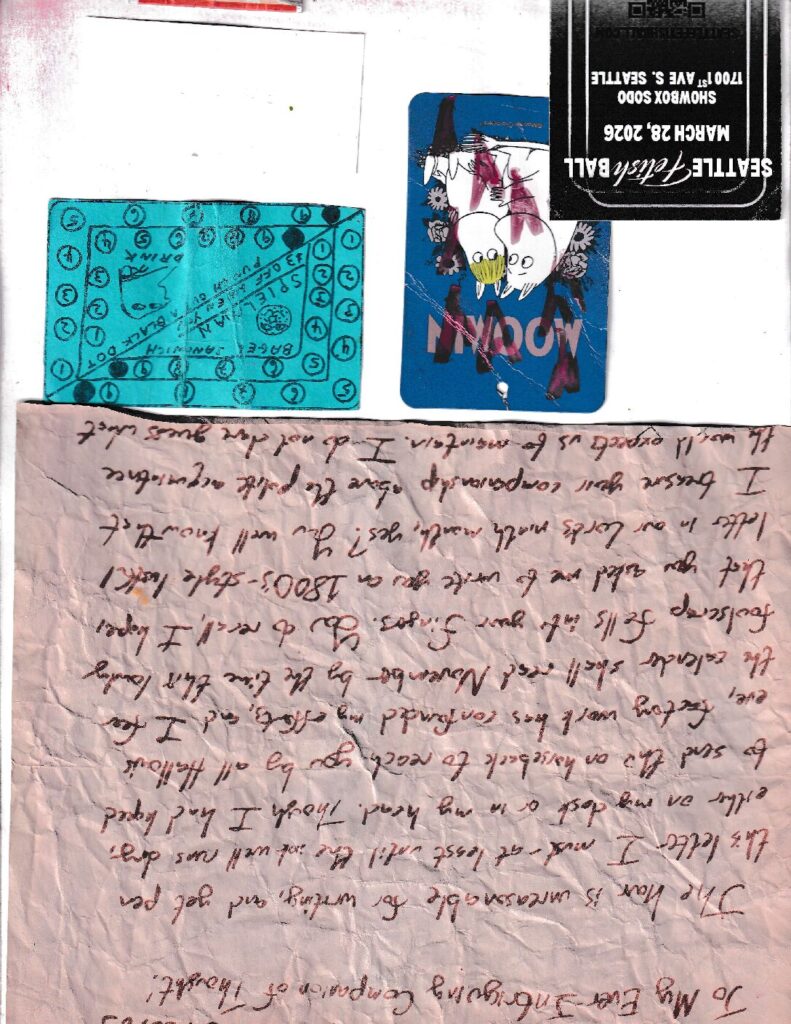 To My Ever-Intriguing Companion of Thought!
The hour is unreasonable for writing, and yet pen
this letter I must - at least until the ink well runs dry,
either on my desk or in my head. Though I had hoped
to send this on horseback to reach you by all Hallow's
eve, factory work has confounded my efforts, and I fear
the calender shall read November by the time this lowly
foolscrap falls into your fingers. You do recall, I hope,
that you asked me to write you an 1800's-style lusty
letter in our Lord's ninth month, yes? You well know that
I treasure your companionship above the polite acquaintence
the world expects us to maintain. I do not dare guess what
MOOMIN
BAGEL SANDWICH
SPIELMAN
$3 OFF WHEN YOU
PUNCH OUT A BLACK DOT
DRINK
SEATTLE Fetish BALL
MARCH 28, 2026
SHOWBOX SODO
1700 1ST AVE S. SEATTLE
SEATTLEFETISHBALL.COM